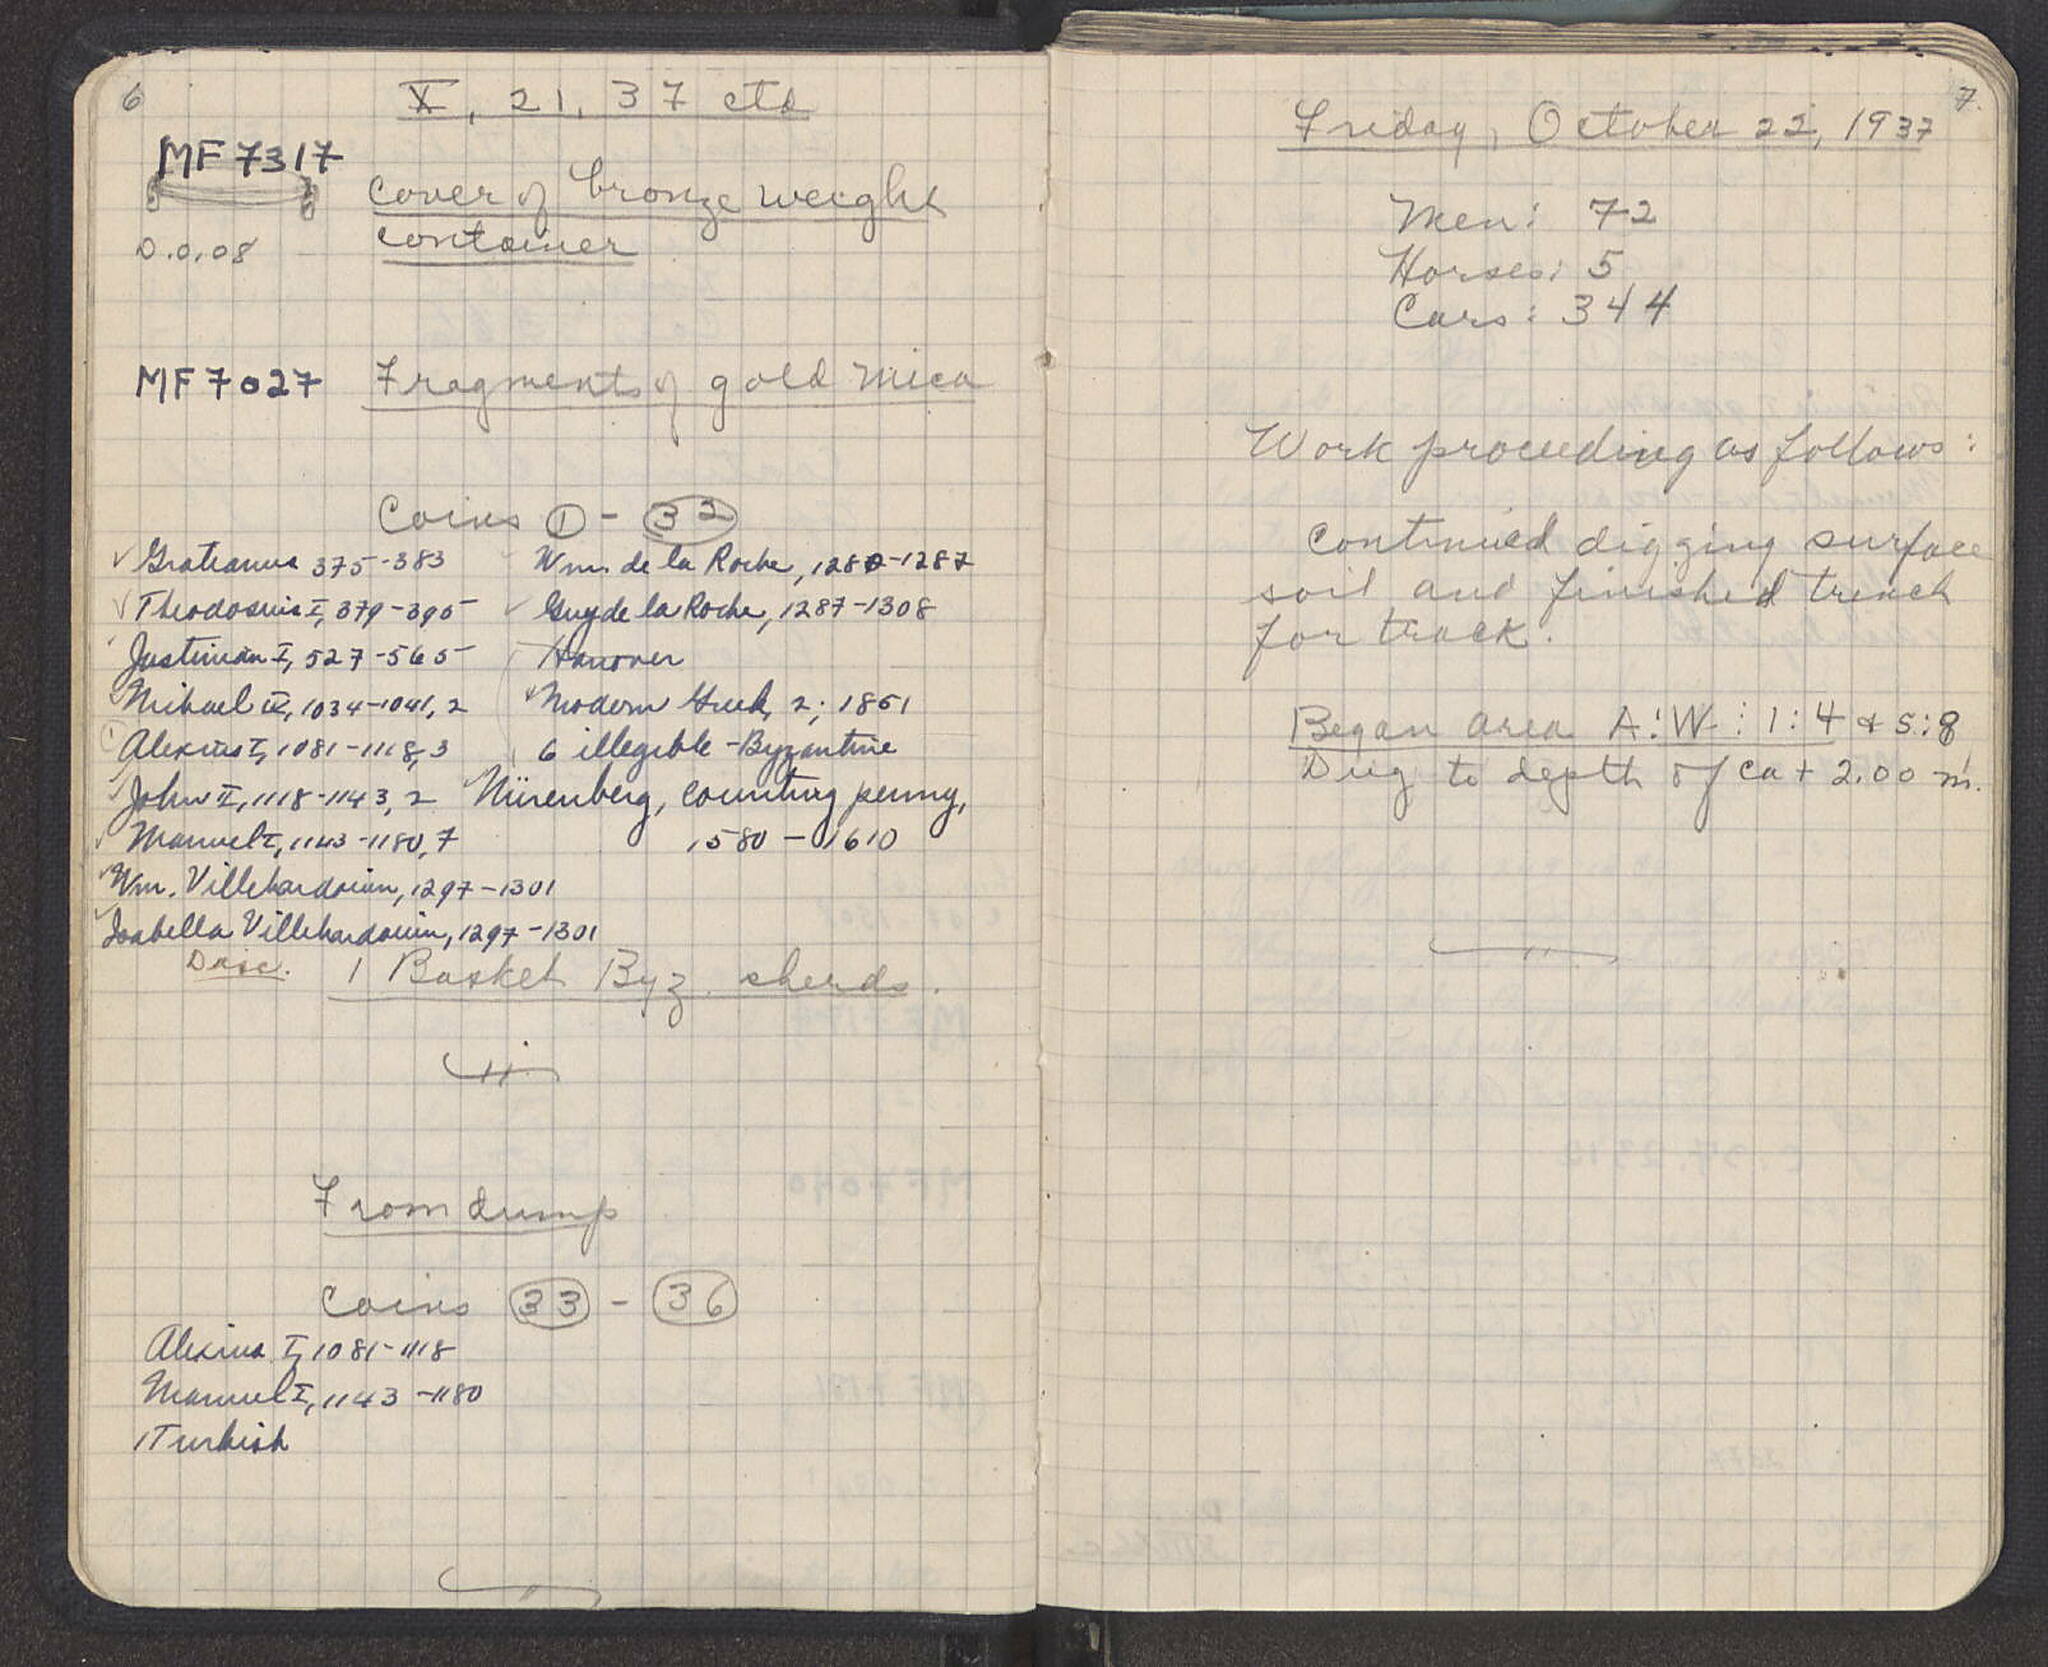 6
X, 21, 37 ctd
MF 7317
cover of bronze weight
container
D. 0.08
MF 7027 Fragments of gold mica
Coins 1 - 32
Gratianus 375-383
Theodosius I, 379-395
Justinian I, 527-565
Michael IV, 1034-1041, 2
Alexius I, 1081-1118, 3
John II, 1118-1143, 2
Manuel I, 1143-1180, 7
Wm. Villehardouin, 1297-1301
Isabella Villehardouin, 1297-1301
Wm. de la Roche, 1280-1287
Guy de la Roche, 1287-1308
Hanover
Modern Greek, 2; 1851
6 illegible - Byzantine
Nürenberg, counting penny,
1580 - 1610
Disc. 1 Basket Byz. sherds.
From dump
Coins 33 - 36
Alexius I, 1081-1118
Manuel I, 1143-1180
1 Turkish
7.
Friday, October 22, 1937
Men: 72
Horses: 5
Cars: 344
Work proceeding as follows:
Continued digging surface
soil and finished trench
for track.
Began area A:W: 1:4 + 5:8
Dug to depth of ca + 2.00 m.